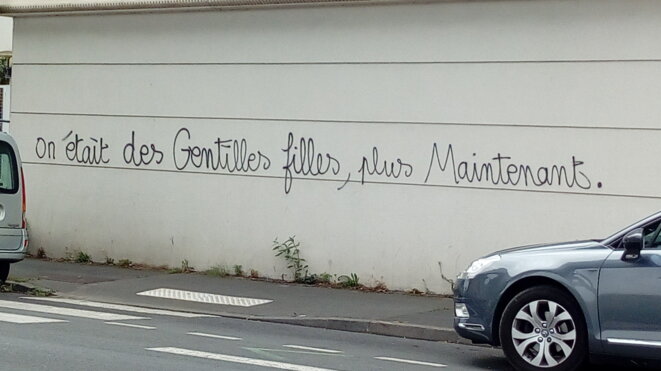 on était des Gentilles filles, plus Maintenant.